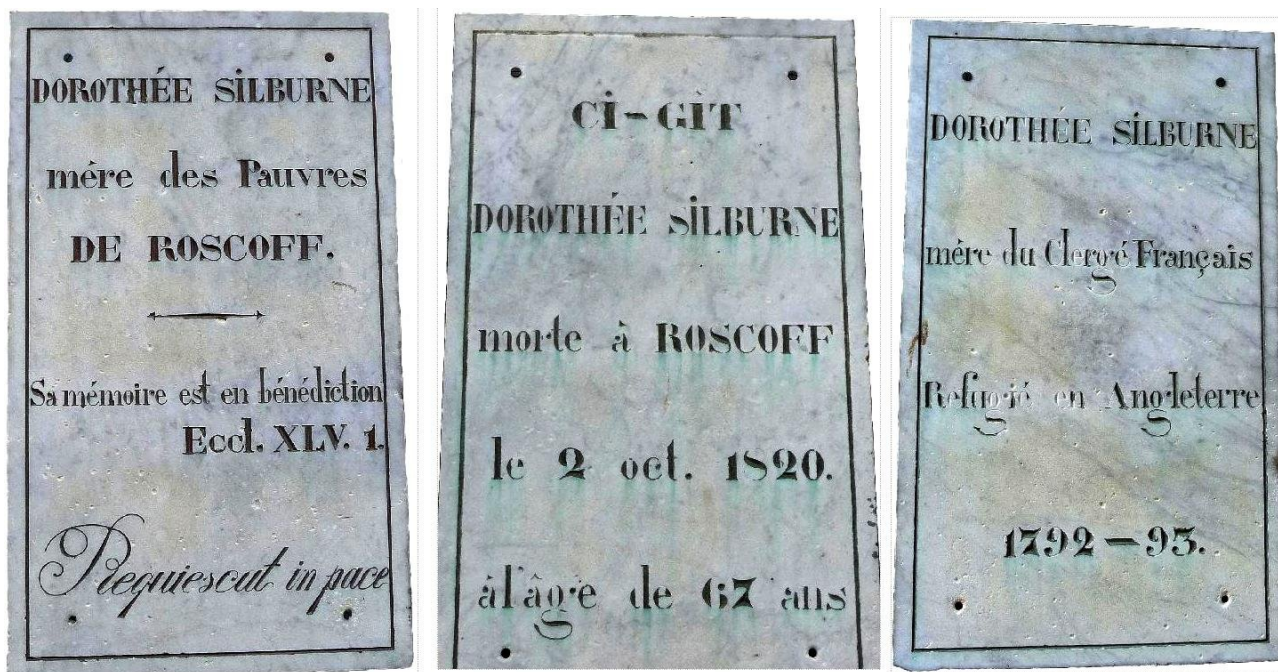 DOROTHÉE SILBURNE
mère des Pauvres
DE ROSCOFF.
Sa mémoire est en bénédiction
Eccl. XLV. 1.
Requiescat in pace
CI-GIT
DOROTHÉE SILBURNE
morte à ROSCOFF
le 2 oct. 1820.
à l'âge de 67 ans
DOROTHÉE SILBURNE
mère du Clergé Français
Refugié en Angleterre
1792-93.